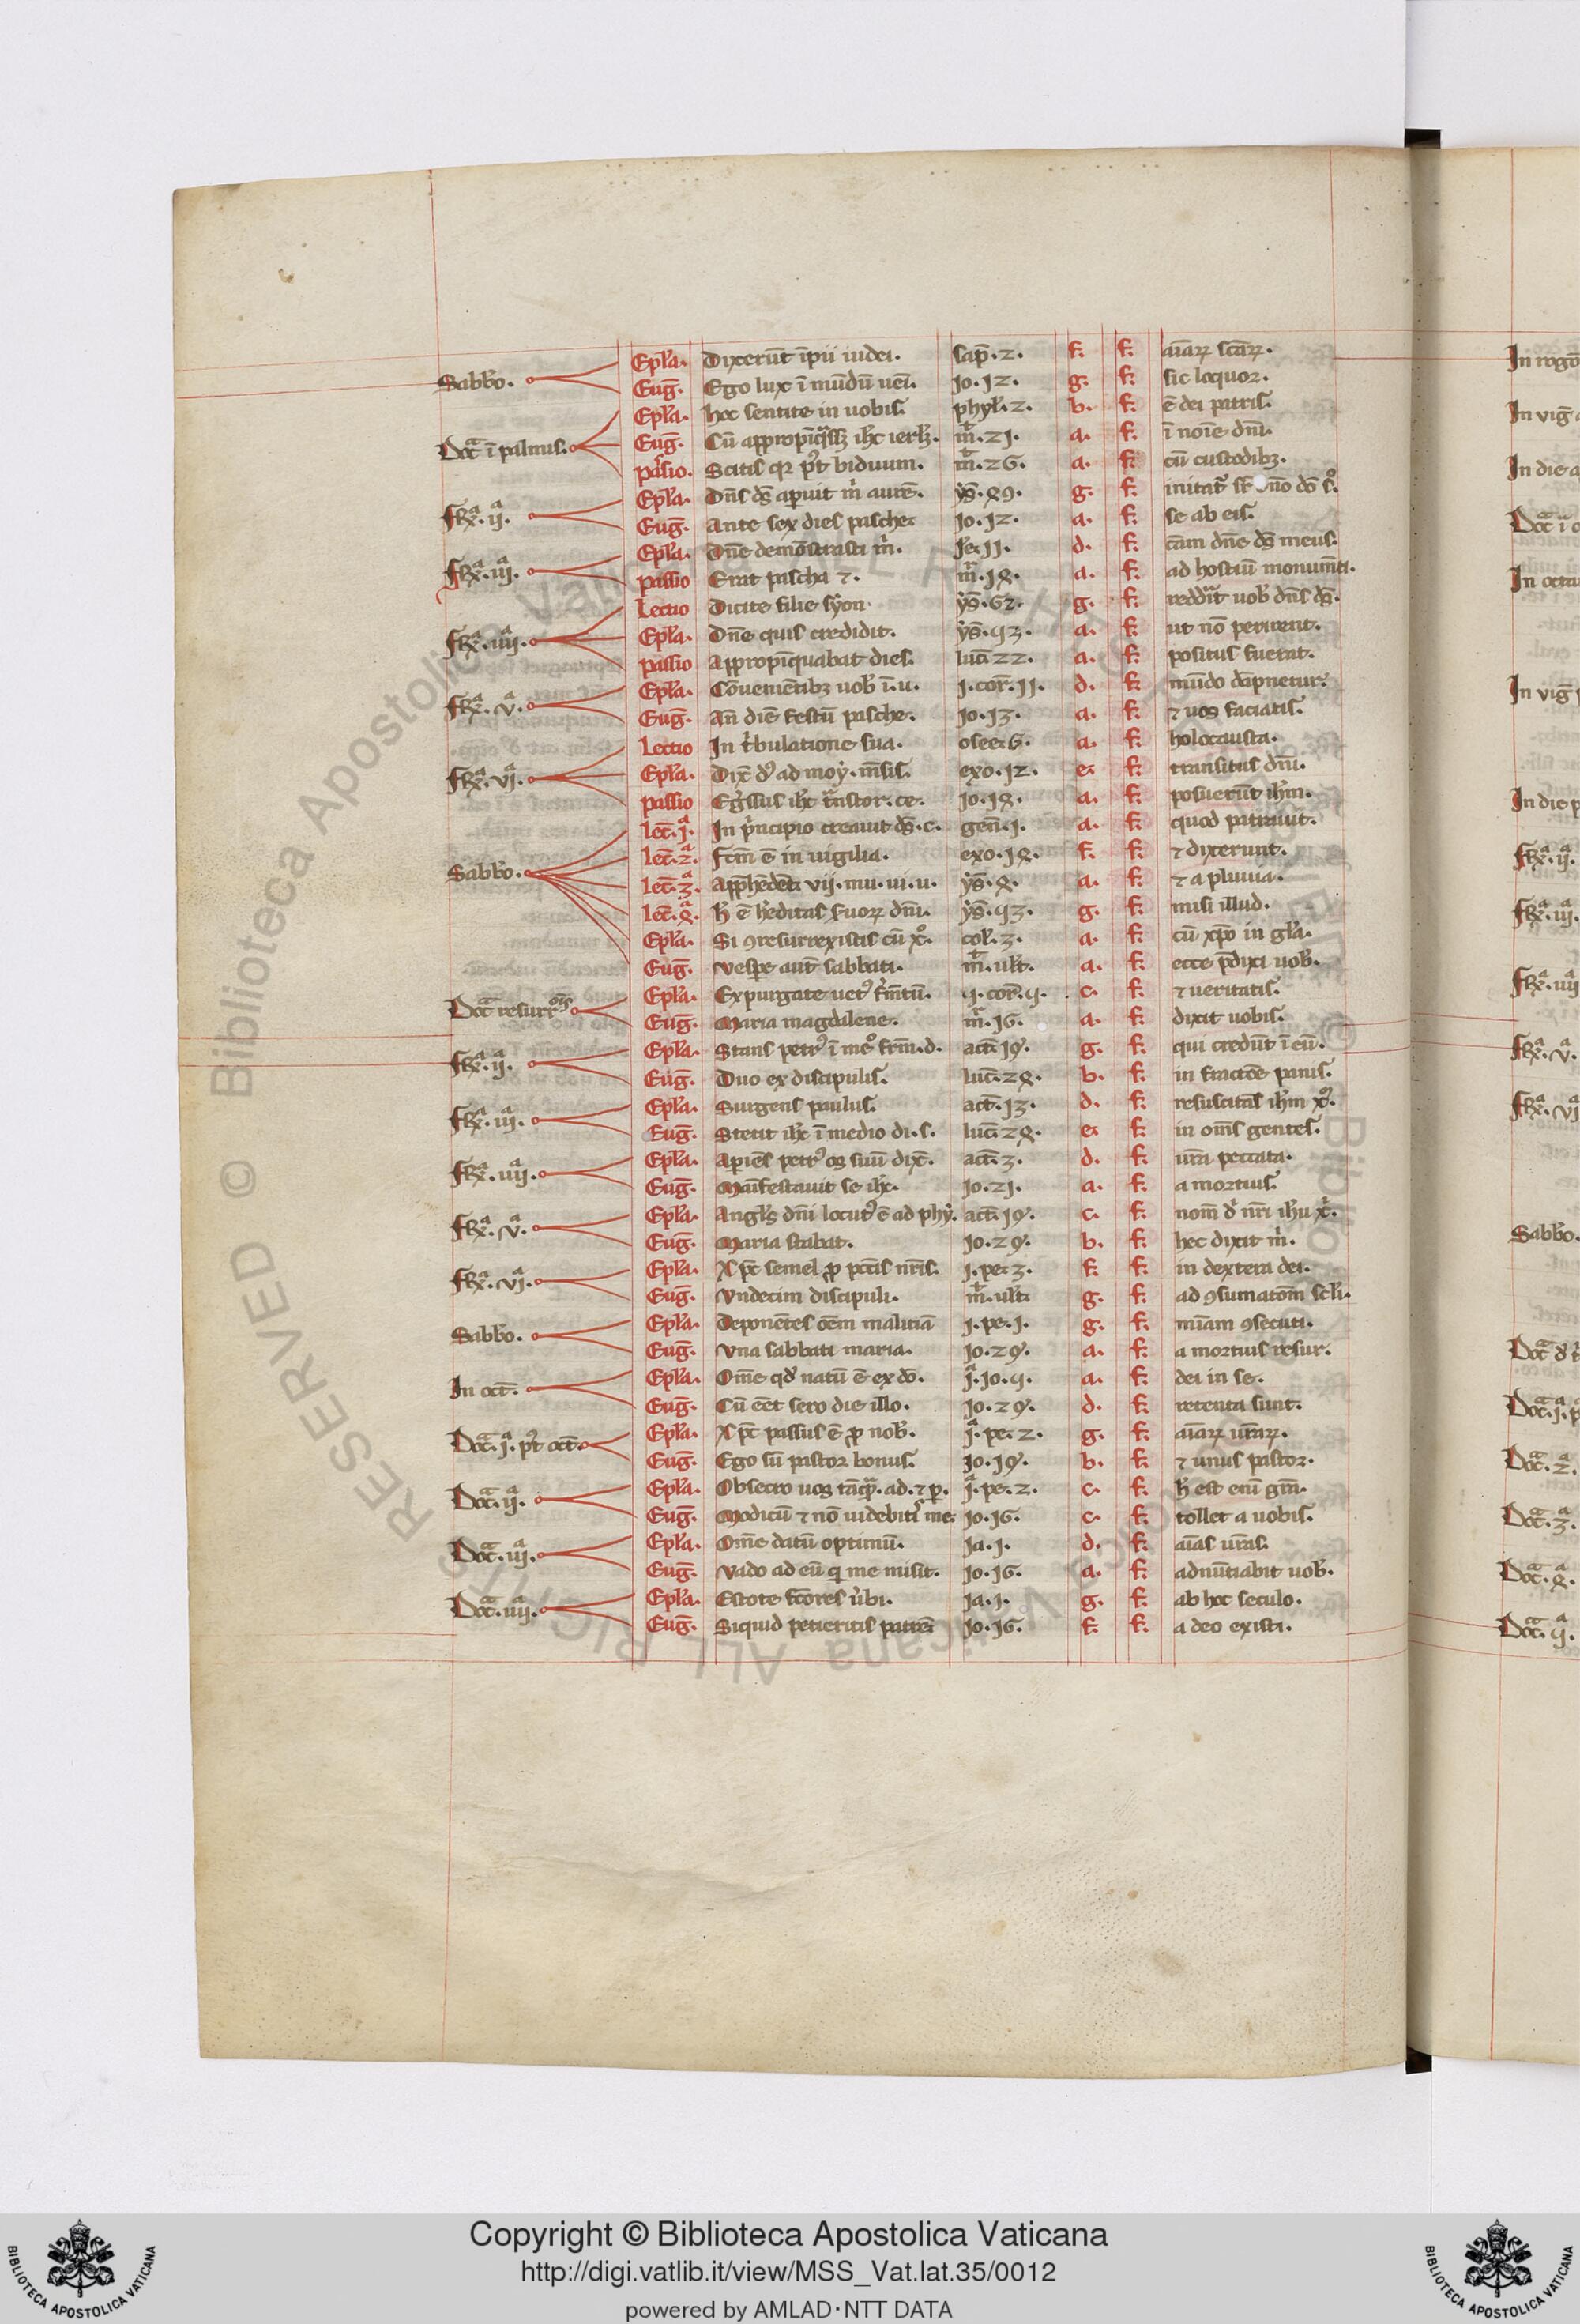 Sabbo. Epla. Dixerūt īpii iudei. sap̄. 2. f. f. aīaꝝ scāꝝ.
Euḡ. Ego lux ī mūdū uēi. Jo. 12. g. f. sic loquor.
Doc̄ ī palmis. Epla. hoc sentite in uobis. phyl. 2. b. f. ē dei patris.
Euḡ. Cū appropīq̄ssꝫ ihc ierlꝫ. m̄. 21. a. f. ī noīe dn̄i.
passio. Scitis qꝛ pꝰt biduum. m̄. 26. a. f. cū custodibꝫ.
fꝶ. ii. Epla. Dn̄s ds̄ aꝑuit m̄ aurē. ys̄. 49. g. f.
Euḡ. Ante sex dies pasche. Jo. 12. a. f. se ab eis.
fꝶ. iii. Epla. Dn̄e demōstrasti m̄. Je. 11. d. f. cām dn̄e ds̄ meus.
passio Erat pascha ⁊. m̄. 14. a. f. ad hostiū monumt̄i.
fꝶ. iiii. Lectio Dicite filie syon. ys̄. 62. g. f. reddīt uob dn̄s ds̄.
Epla. Dn̄e quis credidit. ys̄. 53. a. f. ut nō perirent.
passio Appropīquabat dies. luc̄. 22. a. f. positus fuerat.
fꝶ. v. Epla. Cōueniētibꝫ uob ī. u. 1. cor̄. 11. d. f. mūdo dāpnetur.
Euḡ. An̄ diē festū pasche. Jo. 13. a. f. ⁊ uos faciatis.
fꝶ. vi. Lectio In t̄bulatione sua. osee. 6. a. f. holocausta.
Epla. Dix̄ dꝰ ad moy. m̄sis. exo. 12. e. f. transitus dn̄i.
passio Eḡssus ihc t̄nstor. ce. Jo. 18. a. f. posuerūt ihm.
Sabbo. lec̄. 1. In p̄ncipio creauit ds̄. c. gen̄. 1. a. f. quod patrauit.
lec̄. 2. Fcm̄ ē in uigilia. exo. 14. f. f. ⁊ dixerunt.
lec̄. 3. Appħēdēt vii. mu. ui. u. ys̄. 4. a. f. ⁊ a pluuia.
lec̄. 4. h̄ ē h̄editas suoꝝ dn̄i. ys̄. 53. g. f. misi illud.
Epla. Si ꝯresurrexistis cū x̄o. col. 3. a. f. cū xp̄o in gl̄a.
Euḡ. Vespe aut̄ sabbati. m̄. ult. a. f. ecce p̄dixi uob.
Doc̄ resurrois Epla. Expurgate uetꝰ f̄mtū. 5. cor̄. 5. c. f. ⁊ ueritatis.
Euḡ. Maria magdalene. m̄. 16. a. f. dixit uobis.
fꝶ. ii. Epla. Stans petrꝰ ī meo frm̄. d. act̄. 10. g. f. qui credūt ī eū.
Euḡ. Duo ex discipulis. luc̄. 24. b. f. in fractōe panis.
fꝶ. iii. Epla. Surgens paulus. act̄. 13. d. f. resuscitās ihm x̄.
Euḡ. Stetit ihc ī medio di. s. luc̄. 24. e. f. in oms̄ gentes.
fꝶ. iiii. Epla. Aꝑiēs petrꝰ os suū dix̄. act̄. 3. d. f. ur̄a peccata.
Euḡ. Maīfestauit se ihc. Jo. 21. a. f. a mortuis.
fꝶ. v. Epla. Angls̄ dn̄i locutꝰ ē ad phy. act̄. 19. c. f. nom̄ dꝰ nr̄i ihu x̄.
Euḡ. Maria stabat. Jo. 20. b. f. hec dixit m̄.
fꝶ. vi. Epla. Xp̄c semel ꝓ pcc̄is nr̄is. 1. pe. 3. f. f. in dextera dei.
Euḡ. Vndecim discipuli. m̄. ult. g. f. ad ꝯsumatōm sc̄li.
Sabbo. Epla. Deponētes ōem malitiā 1. pe. 1. g. f. mīam ꝯsecuti.
Euḡ. Vna sabbati maria. Jo. 20. a. f. a mortuis resur.
In oct̄. Epla. Om̄e qd natū ē ex dō. 1. Jo. 5. a. f. dei in se.
Euḡ. Cū eēt sero die illo. Jo. 20. d. f. retenta sunt.
Doc̄. 1. pꝰt oct̄. Epla. Xp̄c passus ē ꝓ nob. 1. pe. 2. g. f. aīaꝝ ur̄aꝝ.
Euḡ. Ego sū pastor bonus. Jo. 10. b. f. ⁊ unus pastor.
Doc̄. ii. Epla. Obsecro uos tāq̄. ad. ⁊ p. 1. pe. 2. c. f. h̄ est enī gr̄a.
Euḡ. Modicū ⁊ nō uidebitis me. Jo. 16. c. f. tollet a uobis.
Doc̄. iii. Epla. Om̄e datū optimū. Ja. 1. d. f. aīas ur̄as.
Euḡ. Vado ad eū q me misit. Jo. 16. a. f. adnūtiabit uob.
Doc̄. iiii. Epla. Estote fc̄ores ūbi. Ja. 1. g. f. ab hoc seculo.
Euḡ. Siquid petieritis patrē Jo. 16. f. f. a deo existi.
In rogō
In viḡ
In die
Doc̄ ī
In octa
In viḡ
In die p
fꝶ. ii.
fꝶ. iii.
fꝶ. iiii
fꝶ. v.
fꝶ. vi
Sabbo.
Doc̄
Doc̄. 1. p
Doc̄. 2.
Doc̄. 3.
Doc̄. 4.
Doc̄. 5.
RESERVED © Biblioteca Apostolica Vaticana ALL RIGHTS RESERVED © Biblioteca Apostolica Vaticana ALL RIGHTS
Copyright © Biblioteca Apostolica Vaticana
http://digi.vatlib.it/view/MSS_Vat.lat.35/0012
powered by AMLAD·NTT DATA
BIBLIOTECA APOSTOLICA VATICANA
BIBLIOTECA APOSTOLICA VATICANA